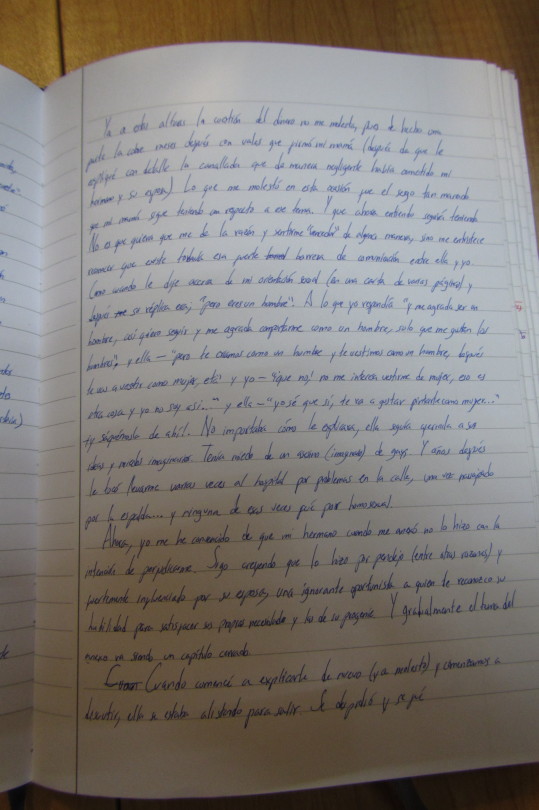 Ya a estas alturas la cuestión del dinero no me molesta, pues de hecho una
parte la cobré meses después con vales que firmó mi mamá (después de que le
expliqué con detalle la canallada que de manera negligente había cometido mi
hermano y su esposa). Lo que me molestó en esta ocasión fue el sesgo tan marcado
que mi mamá sigue teniendo con respecto a ese tema. Y que ahora entiendo seguirá teniendo.
No es que quiera que me dé la razón y sentirme "vencedor" de alguna manera, sino me entristece
reconocer que existe todavía esa fuerte barrera de comunicación entre ella y yo.
Como cuando le dije acerca de mi orientación sexual (en una carta de varias páginas) y
después su réplica era; "pero eres un hombre". A lo que yo respondía "y me agrada ser un
hombre, así quiero seguir y me agrada comportarme como un hombre, solo que me gustan los
hombres", y ella – "pero te criamos como un hombre y te vestimos como un hombre, después
te vas a vestir como mujer, etc." y yo – "¡que no! no me interesa vestirme de mujer, eso es
otra cosa y yo no soy así..." y ella – "yo sé que sí, te va a gustar pintarte como mujer..."
¡y sáquenmela de ahí!. No importaba cómo le explicara, ella seguía aferrada a sus
ideas y miedos imaginarios. Tenía miedo de un (imaginario) de gays. Y años después
le tocó llevarme varias veces al hospital por problemas en la calle, una vez navajeado
por la espalda... y ninguna de esas veces fue por homosexual.
Ahora, yo me he convencido de que mi hermano cuando me no lo hizo con la
intención de perjudicarme. Sigo creyendo que lo hizo por pendejo (entre otras razones) y
fuertemente influenciado por su esposa, una ignorante oportunista a quien le reconozco su
habilidad para satisfacer sus propias necesidades y las de su progenie. Y gradualmente el tema del
dinero va siendo un capítulo cerrado.
Cuando comencé a explicarle de nuevo (ya molesto) y comenzamos a
discutir, ella se estaba alistando para salir. Se despidió y se fue